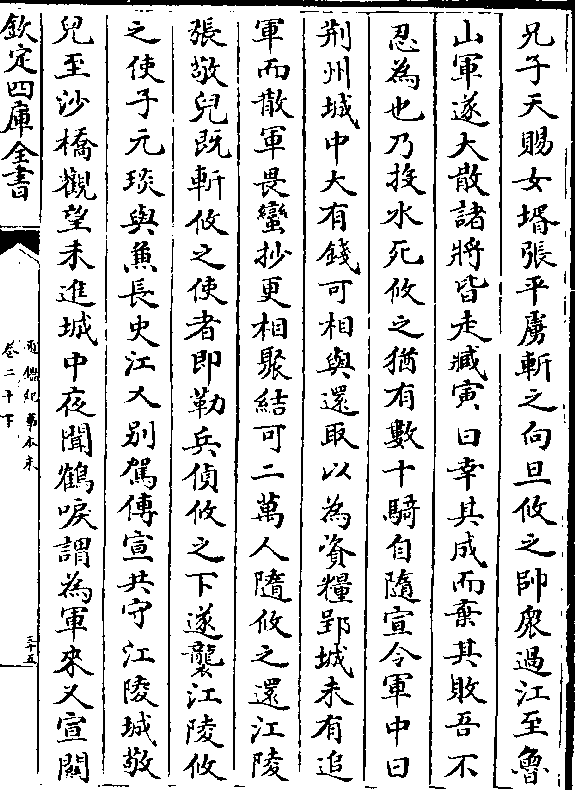 兄子天賜女壻張平虜斬之向旦攸之帥衆過江至魯
山軍遂大散諸將皆走臧寅曰幸其成而棄其敗吾不
忍為也乃投水死攸之猶有數十騎自隨宣令軍中曰
荆州城中大有錢可相與還取以為資糧郢城未有追
軍而散軍畏蠻抄更相聚結可二萬人隨攸之還江陵
張敬兒既斬攸之使者即勒兵偵攸之下遂襲江陵攸
之使子元琰與兼長史江乂别駕傅宣共守江陵城敬
兒至沙橋觀望未進城中夜聞鶴唳謂為軍來乂宣開
欽定四庫全書
通鑑紀事本末
卷二十下
三十五